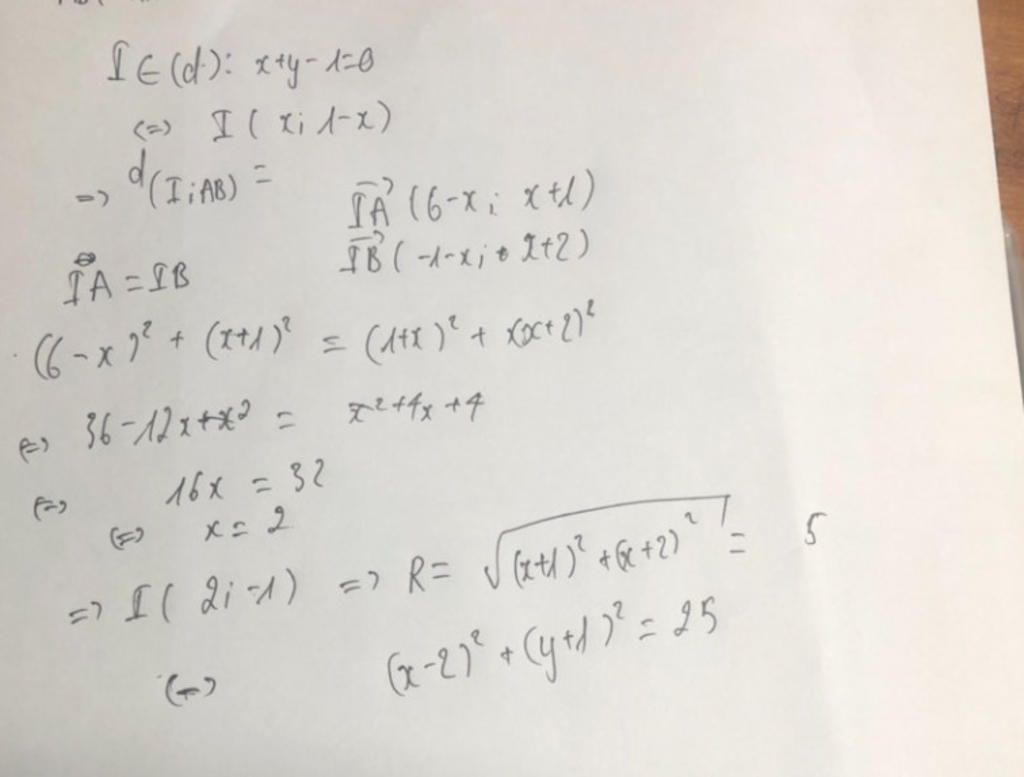 I ∈ (d): x+y-1=0
<=> I ( x; 1-x)
=> d(I; AB) =
IA→ (6-x; x+1)
IB→ (-1-x; x+2)
IA = IB
(6-x)² + (x+1)² = (1+x)² + (x+2)²
<=> 36-12x+x² = x²+4x+4
<=> 16x = 32
<=> x = 2
=> I ( 2; -1) => R = √((x+1)² + (x+2)²) = 5
<=> (x-2)² + (y+1)² = 25